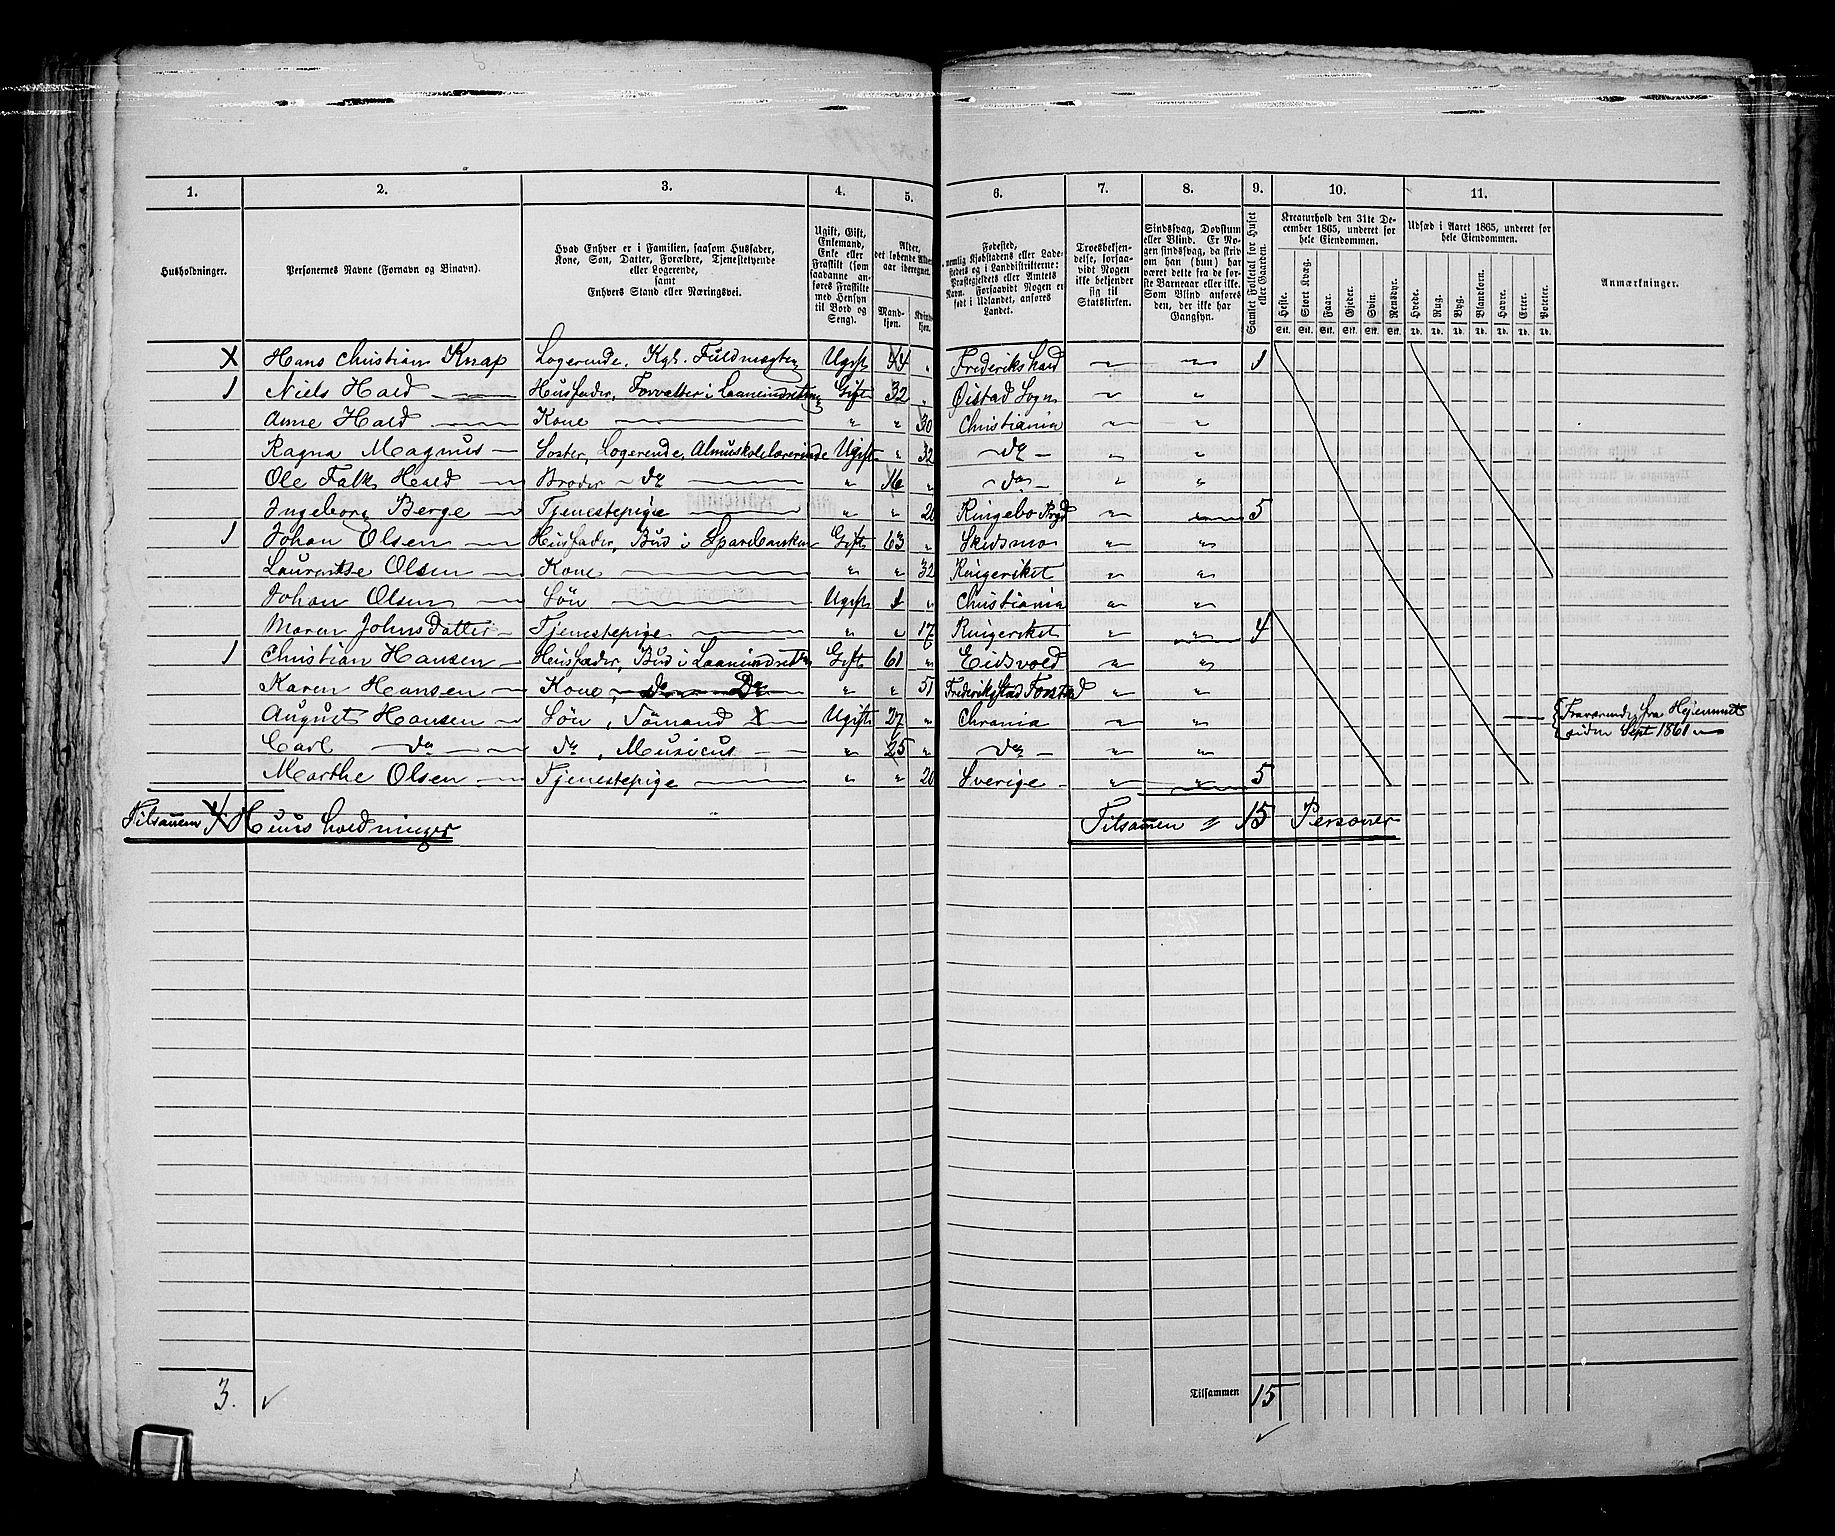 1. 2. 3. 4. 5. 6. 7. 8. 9. 10. 11.
Husholdninger.
Personernes Navne (Fornavn og Binavn).
Hvad Enhver er i Familien, saasom Husfader,
Kone, Søn, Datter, Forældre, Tjenestetyende
eller Logerende,
samt
Enhvers Stand eller Næringsvei.
Ugift, Gift,
Enkemand,
Enke eller
Fraskilt (som
saadanne an-
føres Fraskilte
med Hensyn
til Bord og
Seng).
Alder,
det løbende Alders-
aar iberegnet.
Mand-
kjøn.
Kvinde-
kjøn.
Fødested,
nemlig Kjøbstadens eller Lade-
stedets og i Landdistrikterne:
Præstegjeldets eller Amtets
Navn. Forsaavidt Nogen er
født i Udlandet, anføres
Landet.
Troesbekjen-
delse, forsaa-
vidt Nogen
ikke bekjender
sig til
Statskirken.
Sindssvag, Døvstum
eller Blind. Er No-
gen sindssvag, da skriv
om han (hun) har
været dette fra de før-
ste Barneaar eller ikke.
Som Blind anføres
den, der ikke har
Gangsyn.
Samlet Folketal for Huset
eller Gaarden.
Kreaturhold den 31te De-
cember 1865, underet for
hele Eiendommen.
Heste. Stort Kvæg. Faar. Gjeder. Svin. Rensdyr.
Stk. Stk. Stk. Stk. Stk. Stk.
Udsæd i Aaret 1865, underet for
hele Eiendommen.
Hvede. Rug. Byg. Blandkorn. Havre. Erter. Poteter.
Td. Td. Td. Td. Td. Td. Td.
Anmærkninger.
X Hans Christian Knap Logerende. Kgl. Fuldmægtig Ugift 44 „ Frederikshald „ „ 1
1 Niels Hald Husfader, Forvalter i Laaneindretning Gift 32 „ Øistad Sogn „ „
Anne Hald Kone „ „ 30 Christiania „ „
Ragna Magnus Søster, Logerende, Almuskolelærerinde Ugift „ 32 do „ „
Ole Falk Hald Broder do „ 16 „ do „ „
Ingeborg Berge Tjenestepige „ „ 20 Ringebo Prgd „ „ 5
1 Johan Olsen Husfader, Bud i Sparebanken Gift 63 „ Skedsmo „ „
Laurentse Olsen Kone „ „ 32 Ringeriket „ „
Johan Olsen Søn Ugift 1 „ Christiania „ „
Maren Johnsdatter Tjenestepige „ „ 17 Ringeriket „ „ 4
1 Christian Hansen Husfader, Bud i Laaneindretn Gift 61 „ Eidsvold „ „
Karen Hansen Kone, do Do „ „ 51 Frederikstad Forstad „ „
August Hansen Søn, Sømand X Ugift 27 „ Chrania „ „ Fraværende fra Hjemmet
Carl do do, Musicus „ 25 „ do „ „ siden Sept 1861
Marthe Olsen Tjenestepige „ „ 20 Sverige „ „ 5
Tilsamen 4 Huusholdninger Tilsamen 15 Personer
3. Tilsammen 15